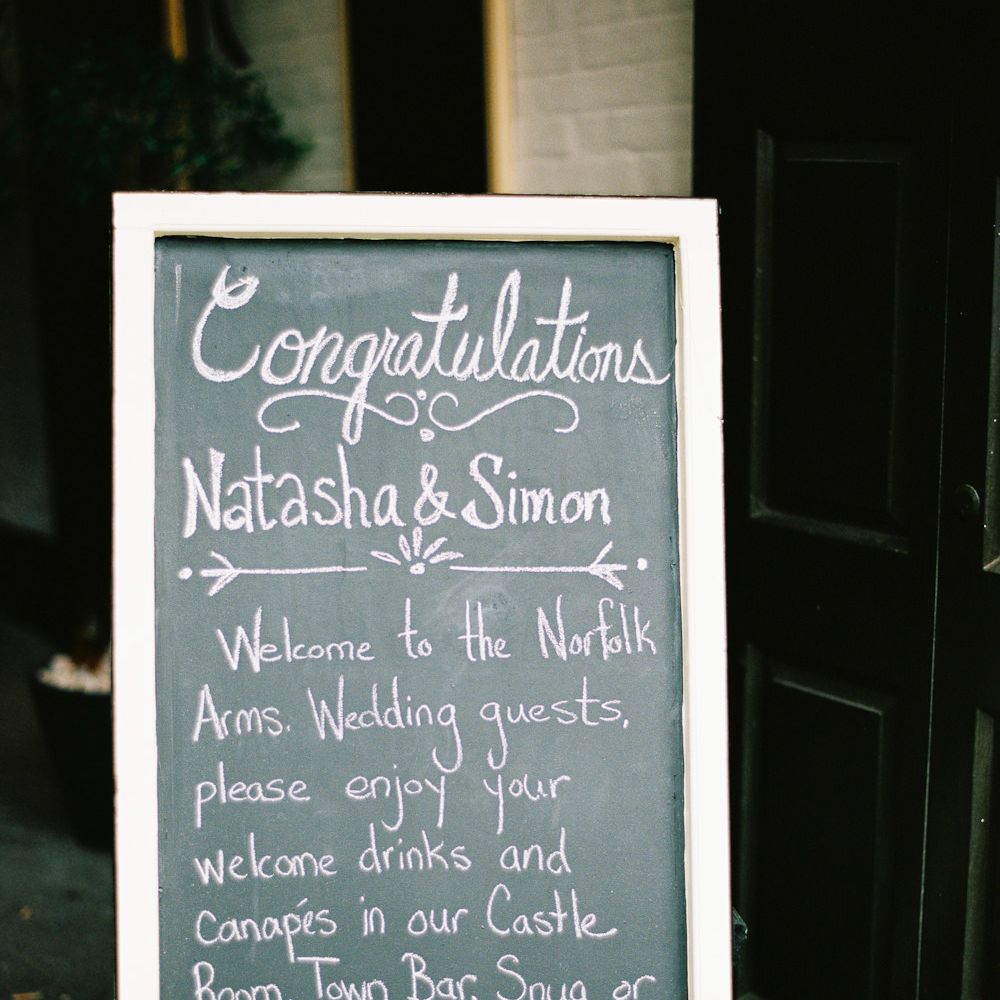 Congratulations
Natasha & Simon
Welcome to the Norfolk
Arms. Wedding guests,
please enjoy your
welcome drinks and
canapés in our Castle
Room, Town Bar, Snug or